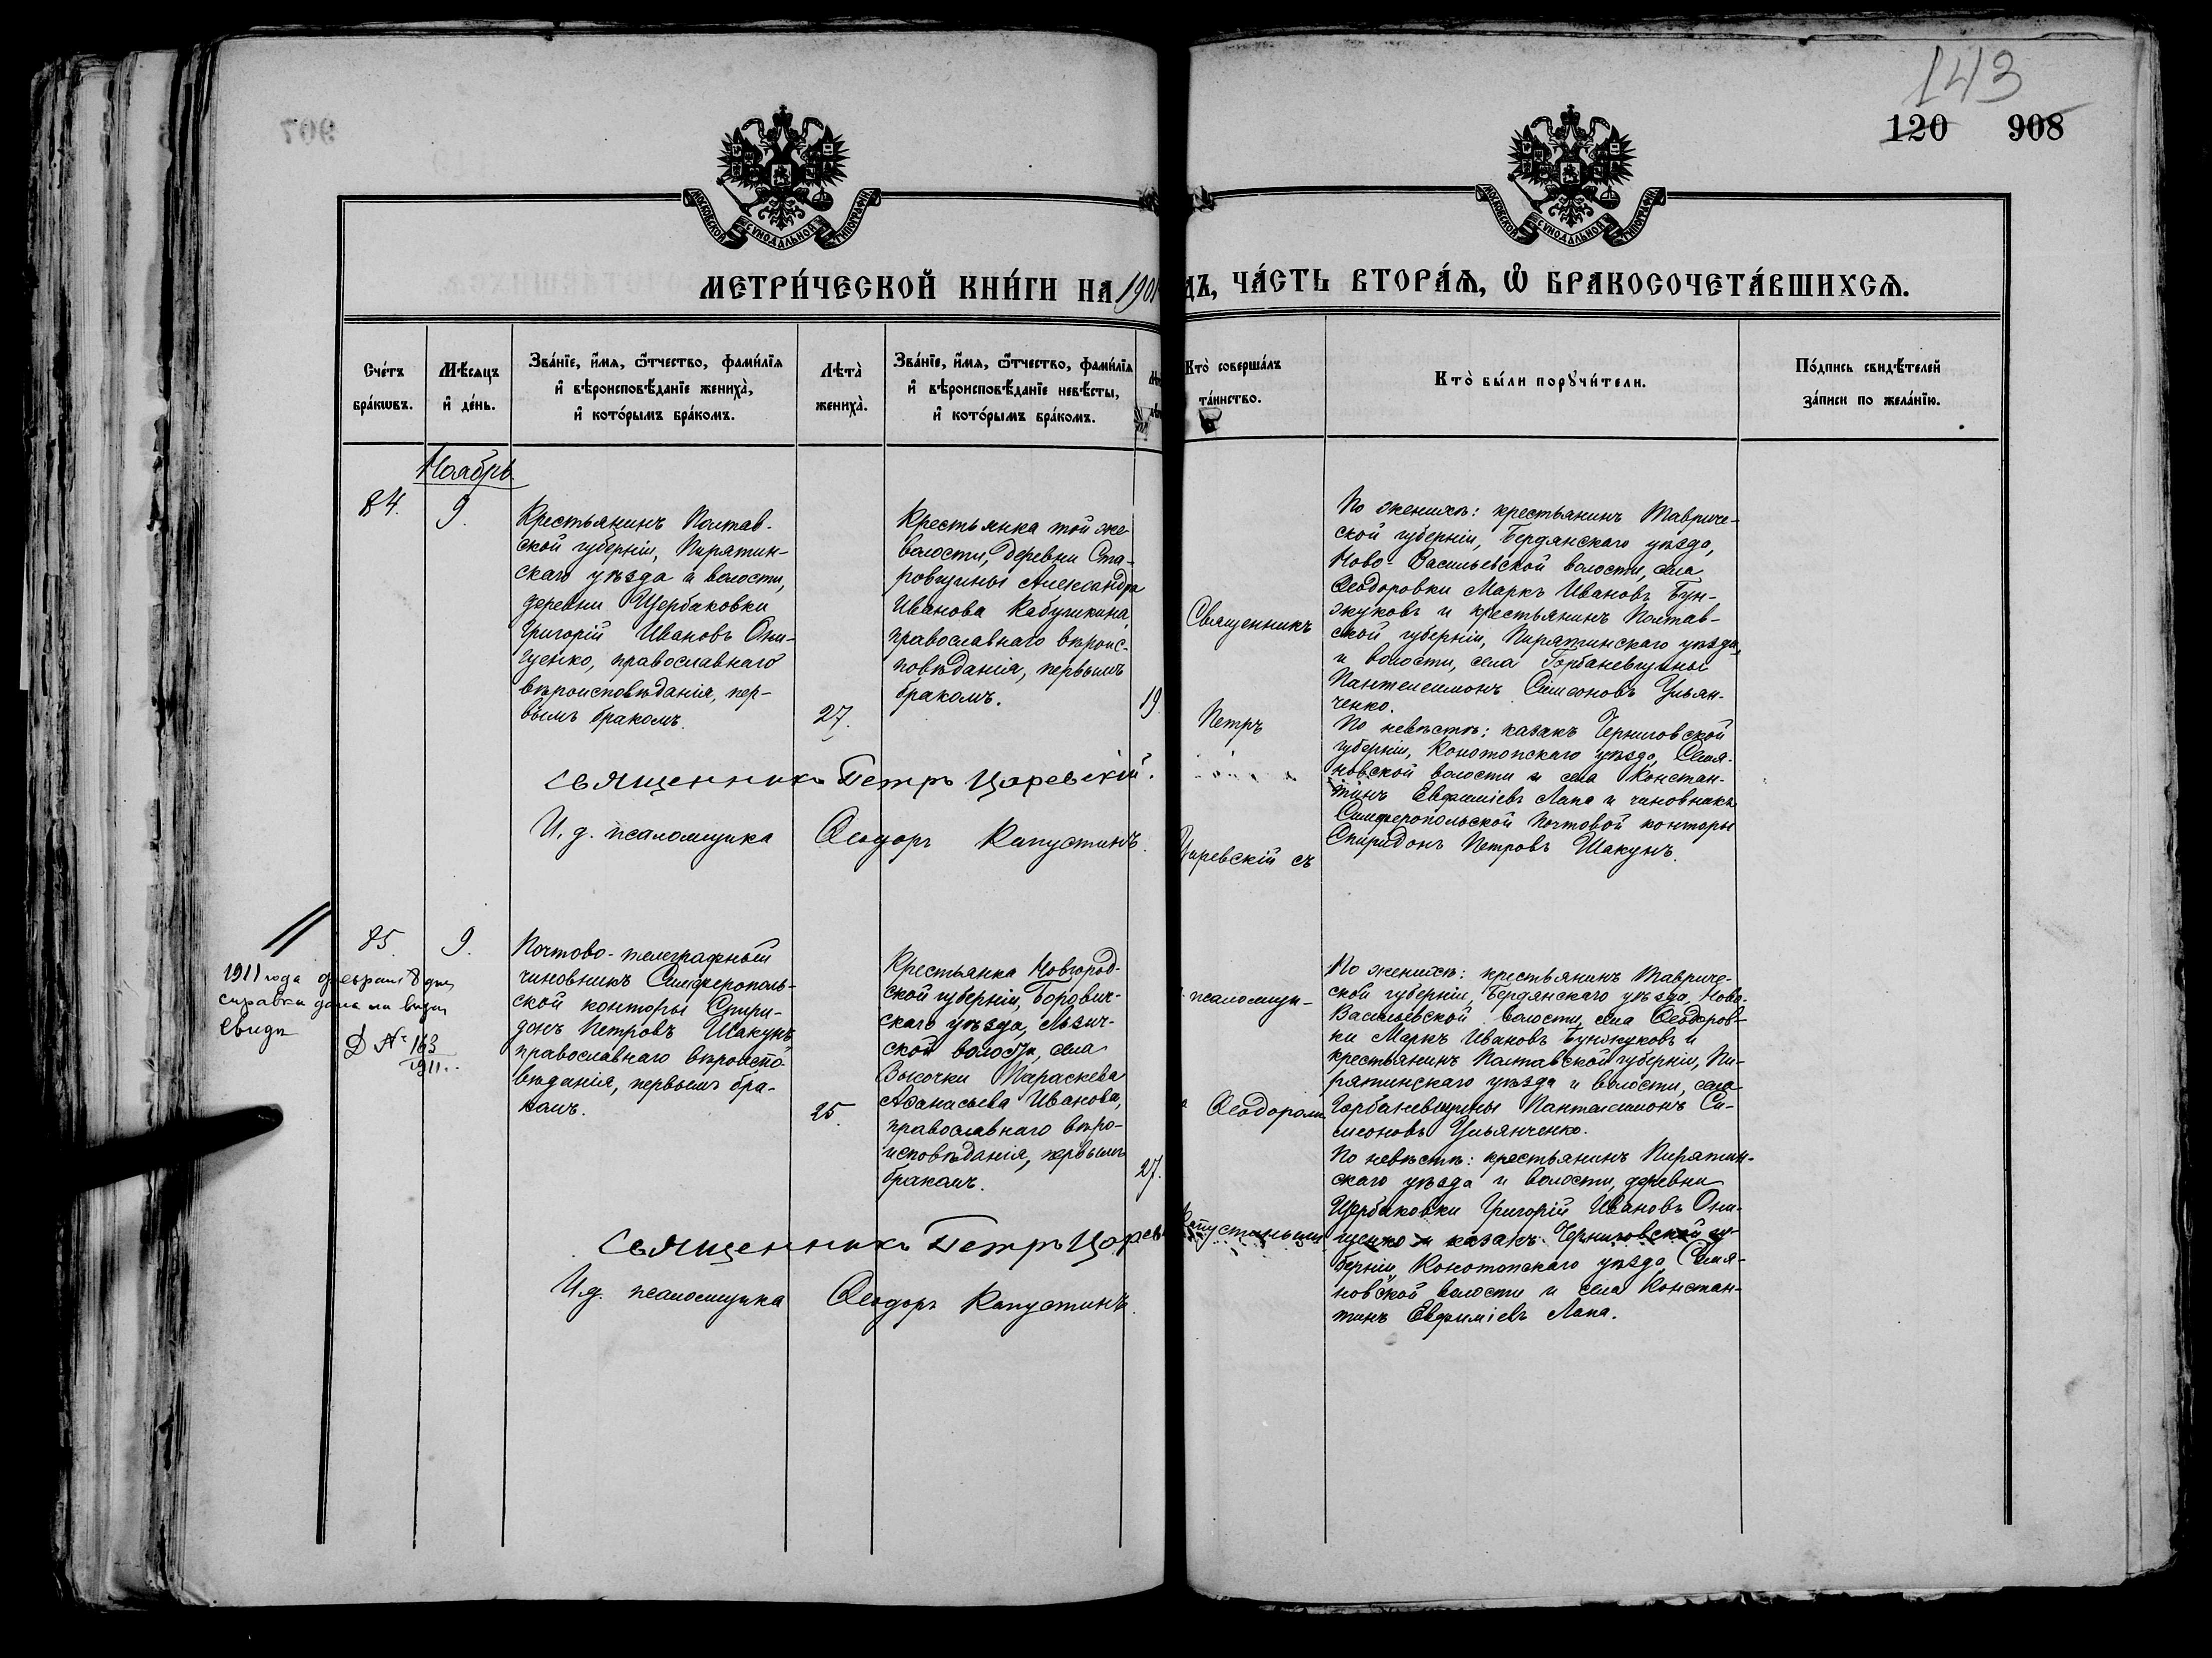 143
120 908
907
МОСКОВСКОЙ СѴНОДАЛЬНОЙ ТИПОГРАФІИ
МОСКОВСКОЙ СѴНОДАЛЬНОЙ ТИПОГРАФІИ
МЕТРИ́ЧЕСКОЙ КНИ́ГИ НА 190
ДЪ, ЧА́СТЬ ВТОРА́Ѧ, Ѽ БРАКОСОЧЕТА́ВШИХСѦ.
Сче́тъ
бра́кѡвъ.
Мѣ́сяцъ
и҆ де́нь.
Зва́нїе, и҆́мѧ, ѻ҆́тчество, фами́лїѧ
и҆ вѣроисповѣ́данїе жениха̀,
и҆ кото́рымъ бра́комъ.
Лѣта̀
жениха̀.
Зва́нїе, и҆́мѧ, ѻ҆́тчество, фами́лїѧ
и҆ вѣроисповѣ́данїе невѣ́сты,
и҆ кото́рымъ бра́комъ.
Кто̀ соверша́лъ
та́инство.
Кто̀ бы́ли порꙋчи́тели.
По́дпись свидѣ́телей
за́писи по жела́нїю.
Ноябрь
84.
9.
Крестьянинъ Полтав-
ской губерніи, Пирятин-
скаго уѣзда и волости,
деревни Щербаковки
Григорій Ивановъ Они-
щенко, православнаго
вѣроисповѣданія, пер-
вымъ бракомъ.
27.
Крестьянка той же
волости, деревни Ста-
ровщины Александра
Иванова Кабушкина,
православнаго вѣроис-
повѣданія, первымъ
бракомъ.
19.
Священникъ
Петръ
Царевскій съ
По женихѣ: крестьянинъ Тавриче-
ской губерніи, Бердянскаго уѣзда,
Ново-Васильевской волости, села
Ѳеодоровки Маркъ Ивановъ Бун-
жуковъ и крестьянинъ Полтав-
ской губерніи, Пирятинскаго уѣзда
и волости, села Горбаневщины
Пантелеимонъ Симеоновъ Ульян-
ченко.
По невѣстѣ: казакъ Черниговской
губерніи, Конотопскаго уѣзда, Семя-
новской волости и села Констан-
тинъ Евфиміевъ Лапа и чиновникъ
Симферопольской почтовой конторы
Спиридонъ Петровъ Шакунъ.
Священникъ Петръ Царевскій.
И. д. псаломщика Ѳеодоръ Капустинъ.
85.
9.
1911 года февраля 8 дня
справка дана на
D № 163
1911.
Почтово-телеграфный
чиновникъ Симферополь-
ской конторы Спири-
донъ Петровъ Шакунъ
православнаго вѣроиспо-
вѣданія, первымъ бра-
комъ.
25.
Крестьянка Новгород-
ской губерніи, Борович-
скаго уѣзда,
ской волости, села
Высочки Параскева
Аѳанасьева Иванова,
православнаго вѣро-
исповѣданія, первымъ
бракомъ.
27.
псаломщи-
Ѳеодоромъ
Капустинымъ
По женихѣ: крестьянинъ Тавриче-
ской губерніи, Бердянскаго уѣзда, Ново-
Васильевской волости, села Ѳеодоров-
ки Маркъ Ивановъ Бунжуковъ и
крестьянинъ Полтавской губерніи, Пи-
рятинскаго уѣзда и волости, села
Горбаневщины Пантелеимонъ Си-
меоновъ Ульянченко.
По невѣстѣ: крестьянинъ Пирятин-
скаго уѣзда и волости, деревни
Щербаковки Григорій Ивановъ Они-
щенко и казакъ Черниговской гу-
берніи Конотопскаго уѣзда, Семя-
новской волости и села Констан-
тинъ Евфиміевъ Лапа.
Священникъ Петръ Царев
И. д. псаломщика Ѳеодоръ Капустинъ.